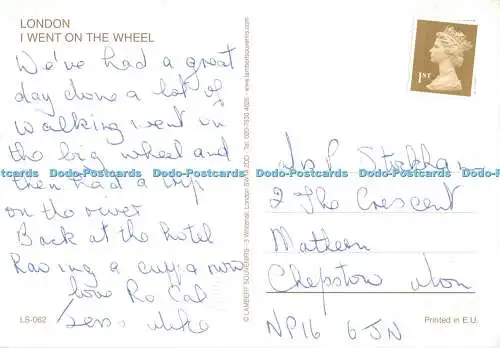 LONDON
I WENT ON THE WHEEL
We've had a great
day done a lot of
walking went on
the big wheel and
then had a trip
on the river
Back at the hotel
Having a cuppa now
love Ro Cal
LS-062
© LAMBERT SOUVENIRS - 3 Whitehall, London SW1A 2DD Tel: 020-7930 4820 - www.lambertsouvenirs.com
1ST
P
2 The Crescent
Chepstow
NP16 6JN
Printed in E.U.
Dodo-Postcards Dodo-Postcards Dodo-Postcards Dodo-Postcards